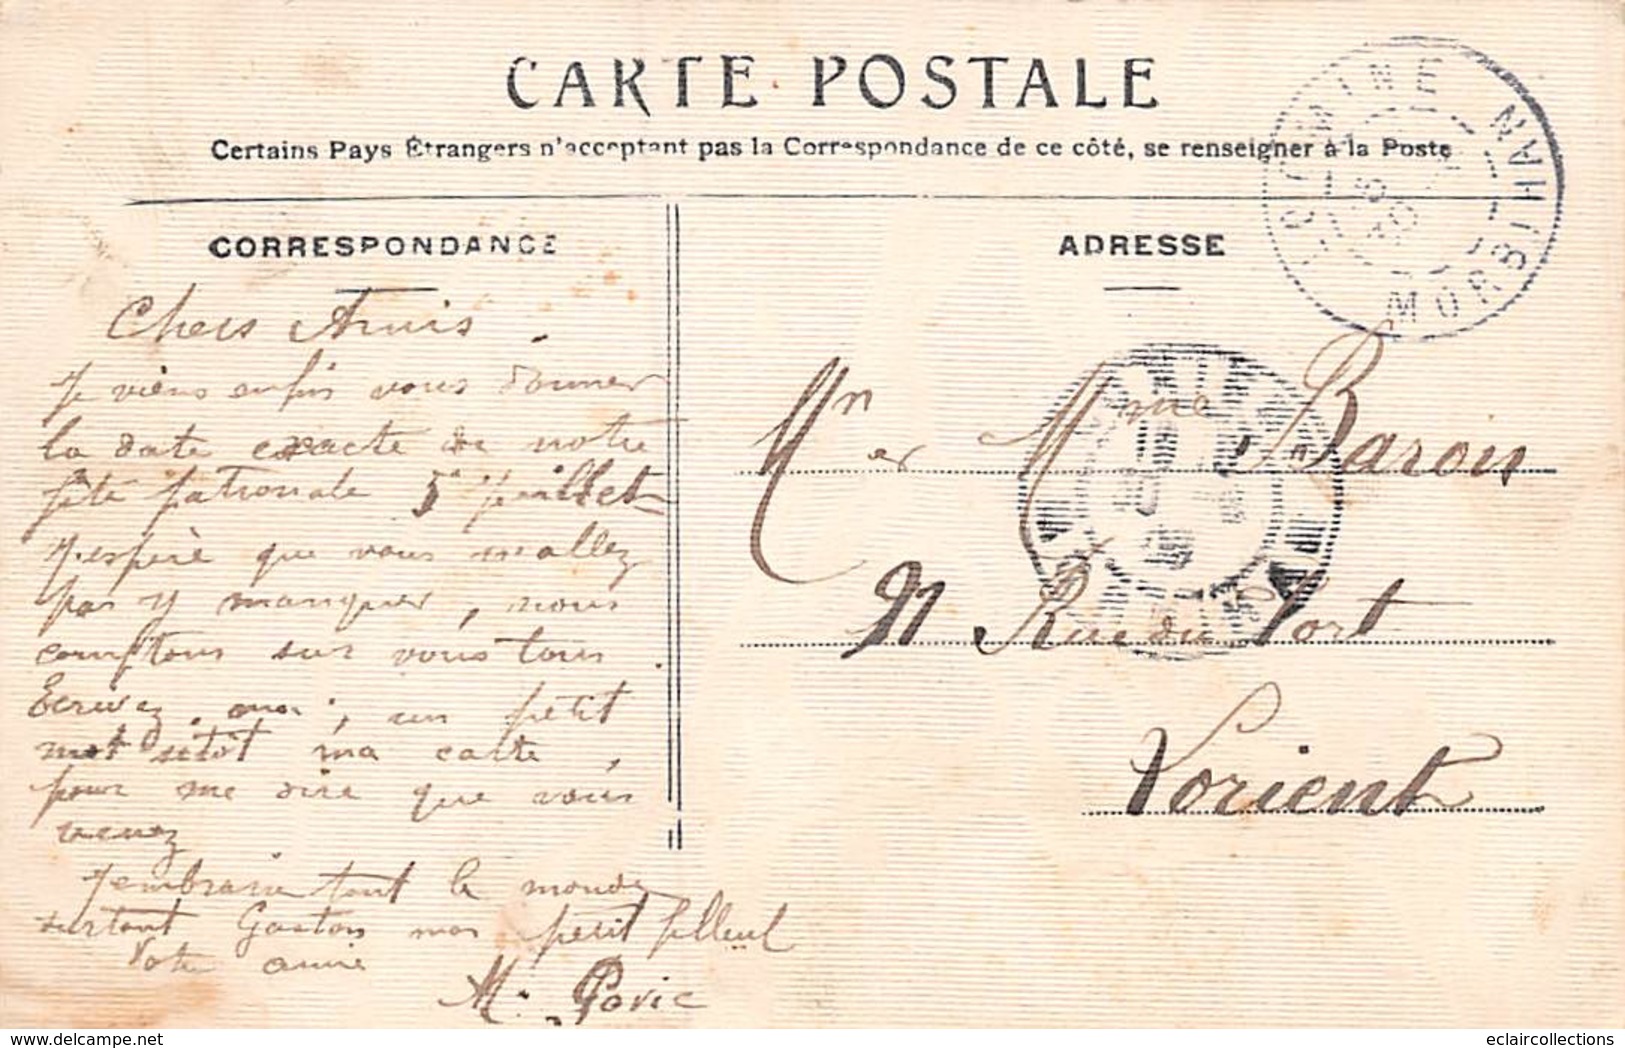 CARTE POSTALE
Certains Pays Étrangers n'acceptant pas la Correspondance de ce côté, se renseigner à la Poste
CORRESPONDANCE
Chers Amis
Je viens enfin vous donner
la date exacte de notre
fête patronale 5 juillet
J'espère que vous n'allez
pas y manquer, nous
comptons sur vous tous
Écrivez moi, un petit
mot sitôt ma carte,
pour me dire que vous
venez
J'embrasse tout le monde
surtout Gaston mon petit filleul
Votre amie
M.
ADRESSE
LOCMINE MORBIHAN
Mr et Mme
Rue du Port
Lorient
www.delcampe.net
eclaircollections